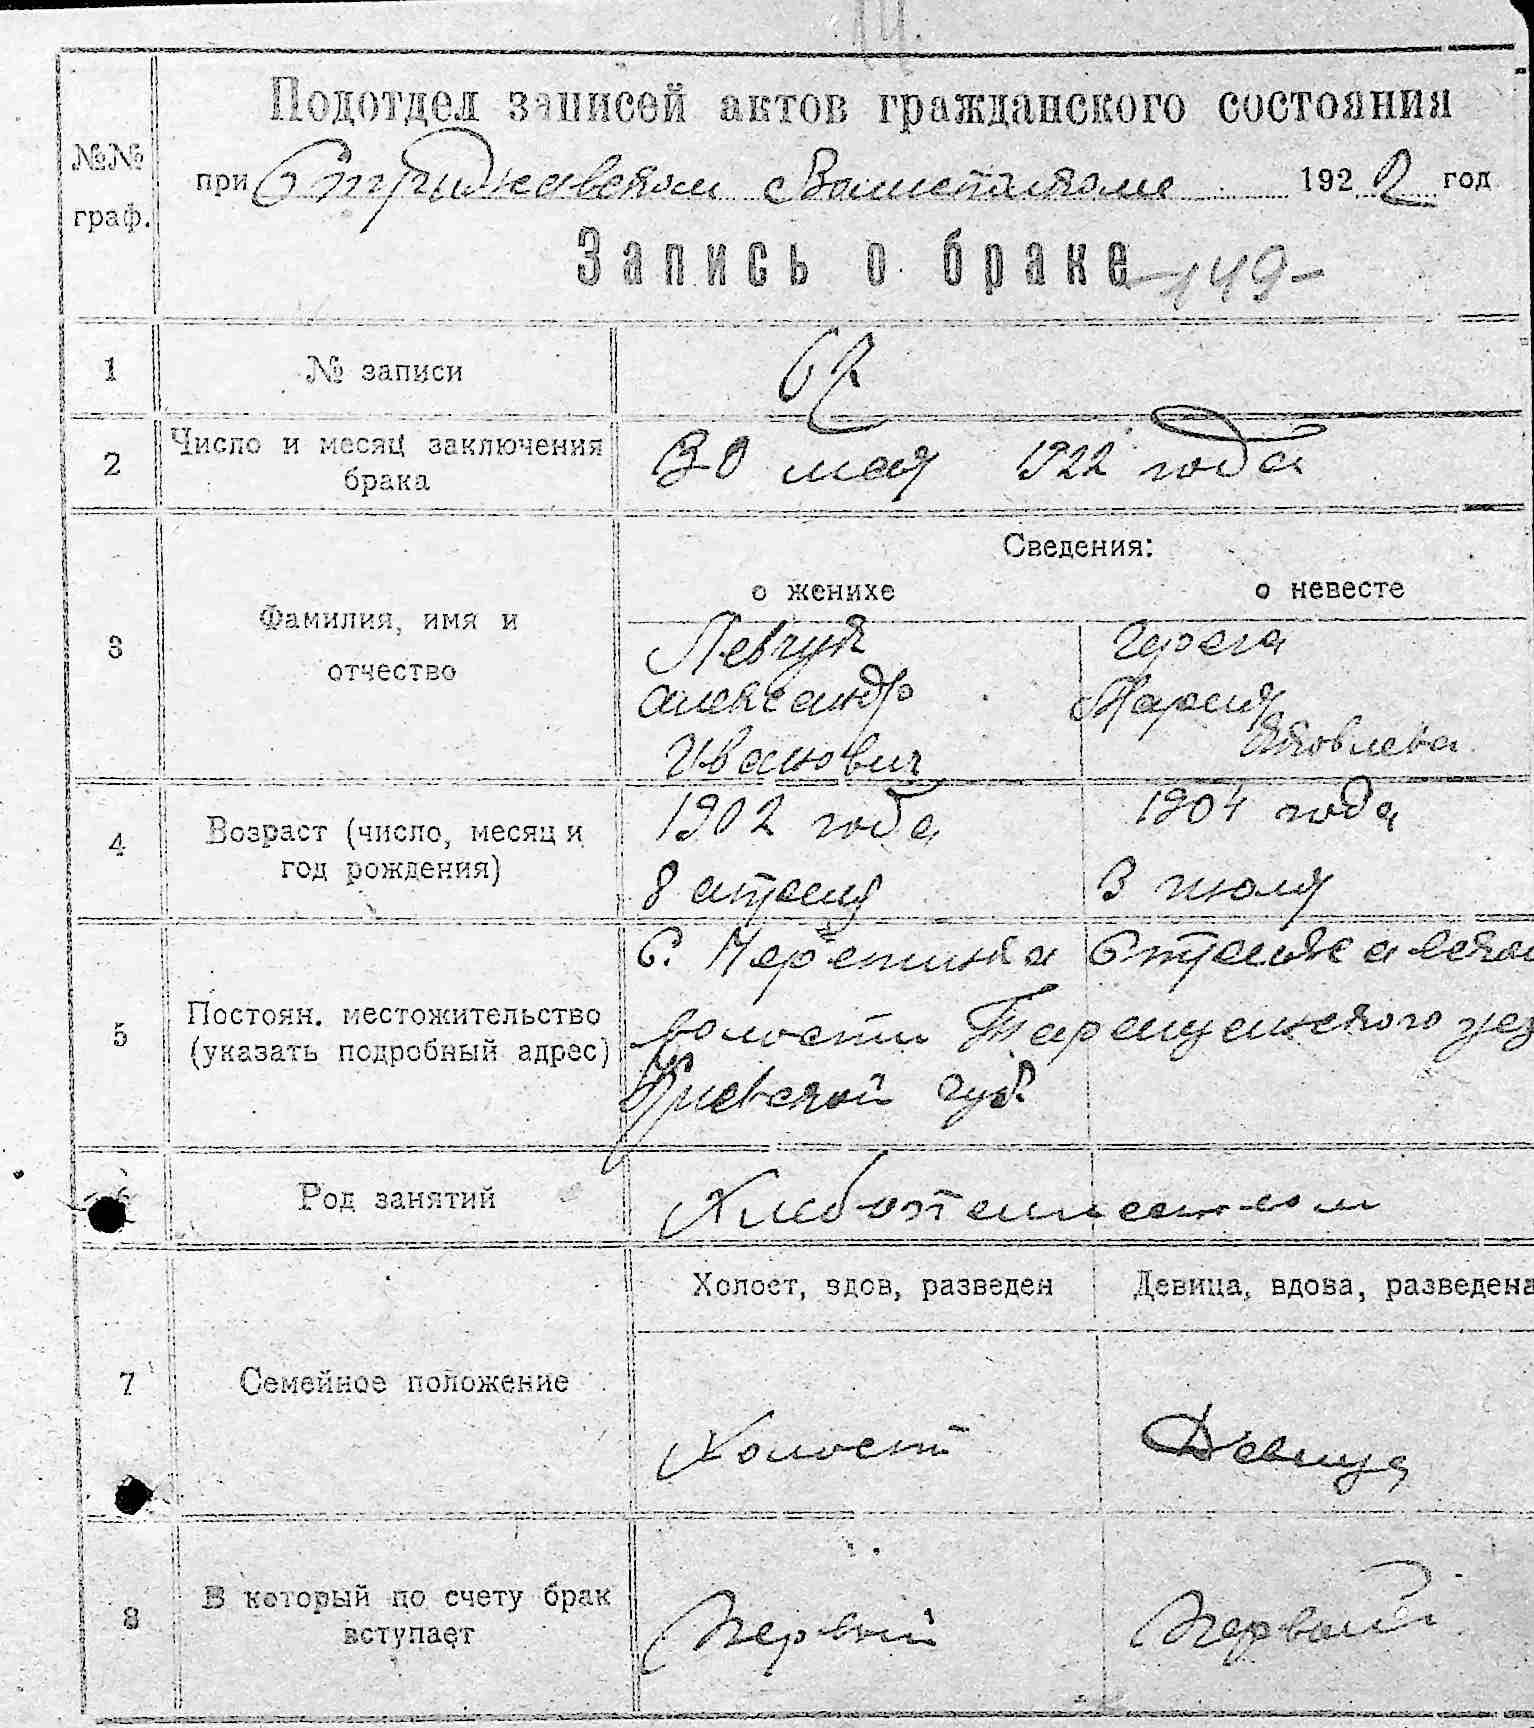 Подотдел записей актов гражданского состояния
№№ граф.
при Стрижавском Волисполкоме 1922 год
Запись о браке -149-
1 № записи 62
2 Число и месяц заключения брака 30 мая 1922 года
Сведения:
о женихе о невесте
3 Фамилия, имя и отчество
Левчук
Александр Мария
Иванович Яковлева
4 Возраст (число, месяц и год рождения)
1902 года 1904 года
8 апреля 3 июля
5 Постоян. местожительство (указать подробный адрес)
С.
волости Таращанского уез
Киевской губ.
Род занятий
7 Семейное положение
Холост, вдов, разведен Девица, вдова, разведена
Холост Девица
8 В который по счету брак вступает
Первый Первый